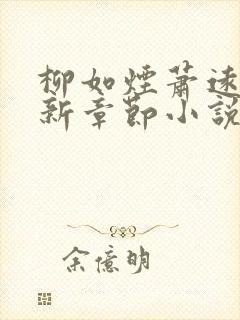 柳如煙蕭遠
新章節小說
余億明